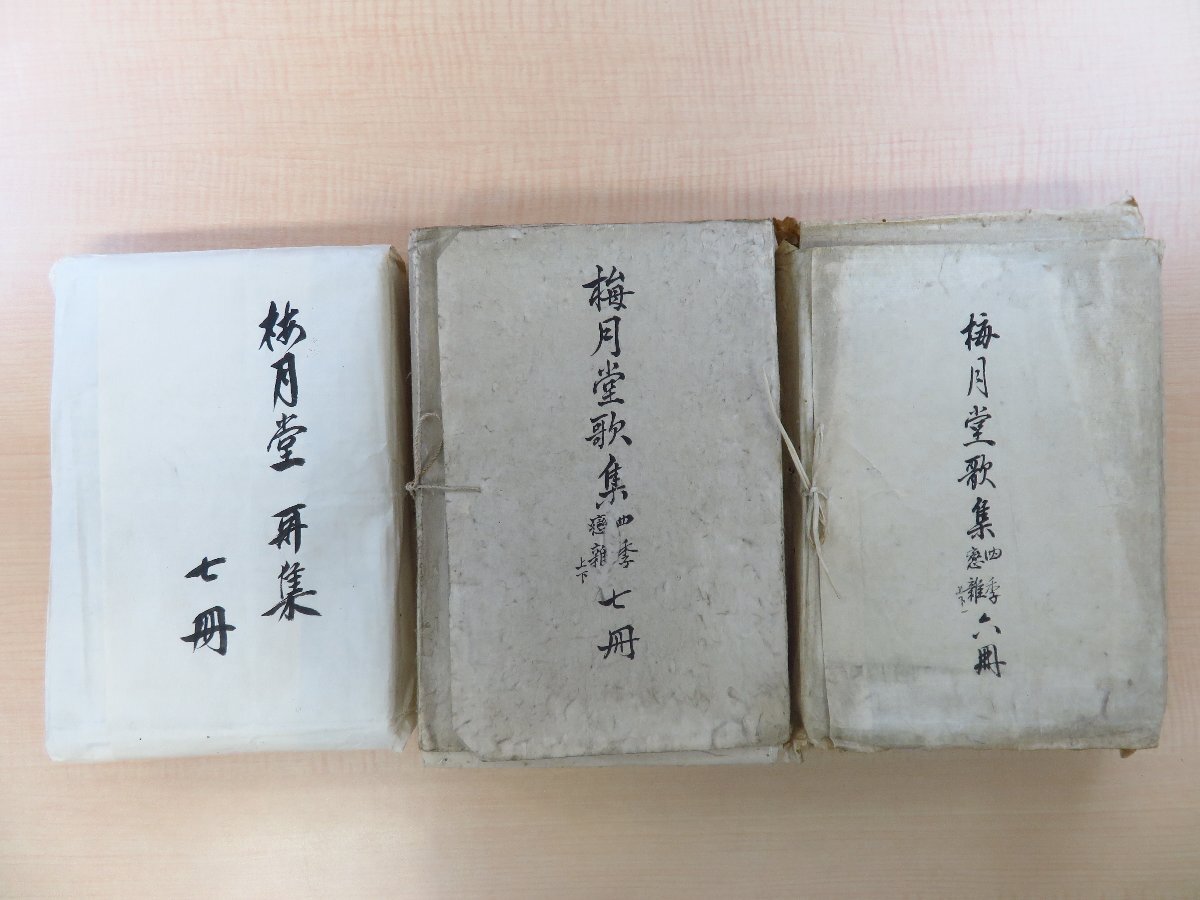 梅月堂歌集
四季
戀雜
上下一
六冊
梅月堂歌集
四季
戀雜
上下
七冊
梅月堂 再集
七冊